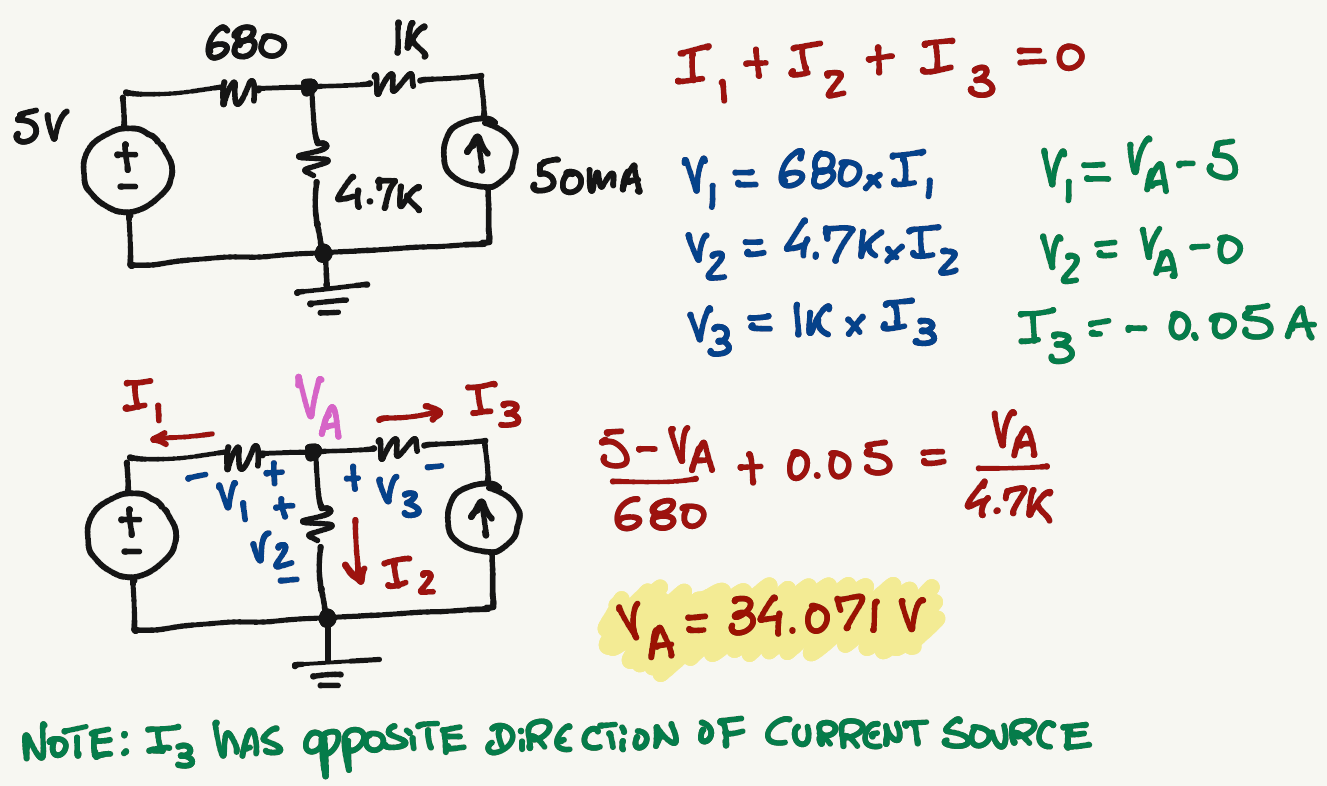 680 1K
5V
4.7K
50mA
I₁ + I₂ + I₃ = 0
V₁ = 680 x I₁
V₂ = 4.7K x I₂
V₃ = 1K x I₃
V₁ = V_A - 5
V₂ = V_A - 0
I₃ = - 0.05A
I₁ V_A I₃
- V₁ + + V₃ -
+ V₂ -
I₂
(5-V_A)/680 + 0.05 = V_A/4.7K
V_A = 34.071 V
NOTE: I₃ HAS OPPOSITE DIRECTION OF CURRENT SOURCE